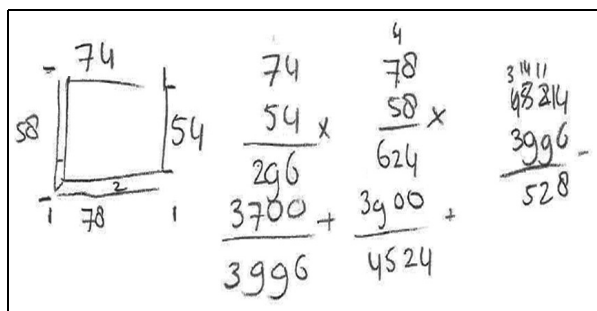 74
58
54
2
78
74
54 ×
296
3700 +
3996
4
78
58 ×
624
3900 +
4524
3 14 11
3996 -
528